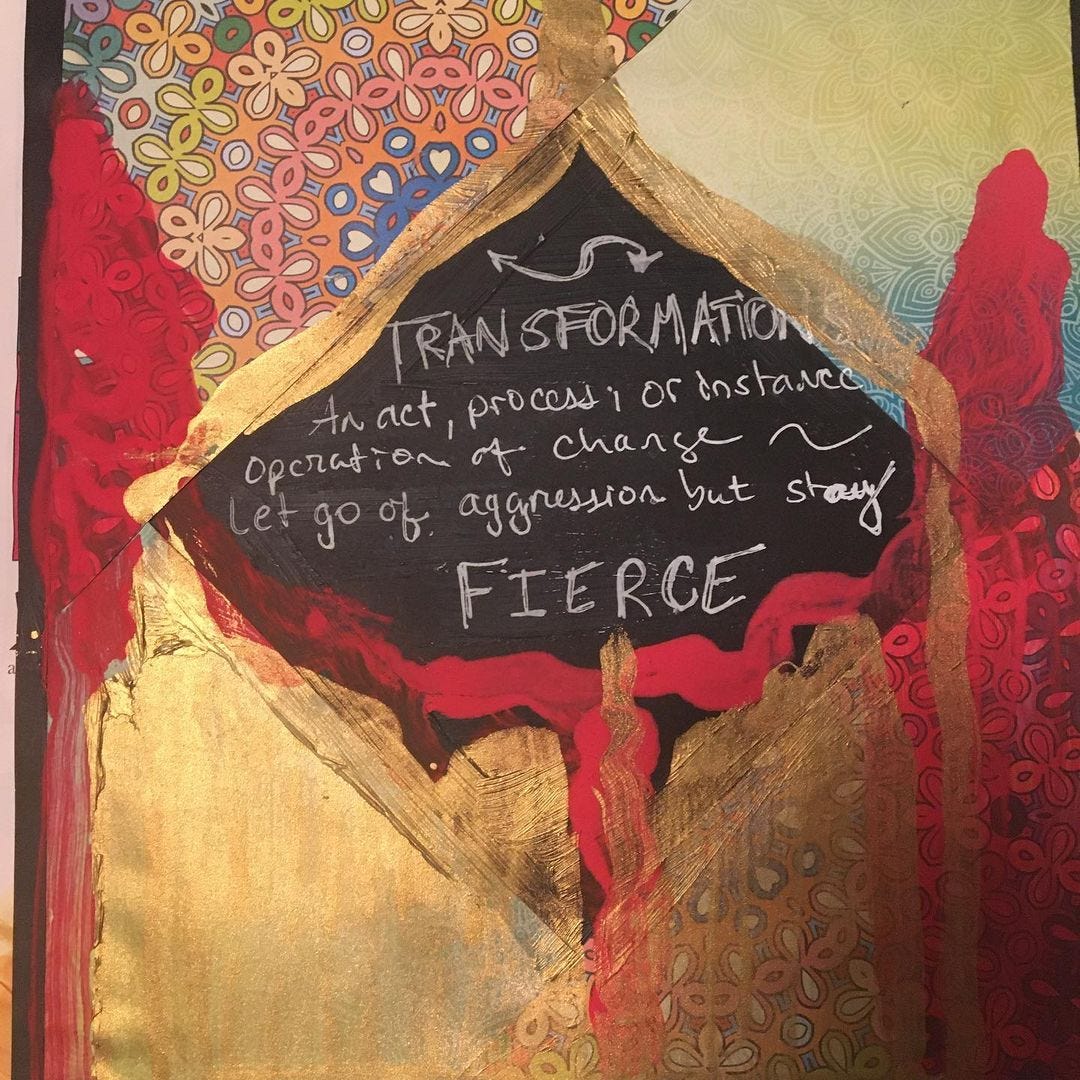 TRANSFORMATIONS
An act, process; or instance
operation of change ~
Let go of aggression but stay
FIERCE